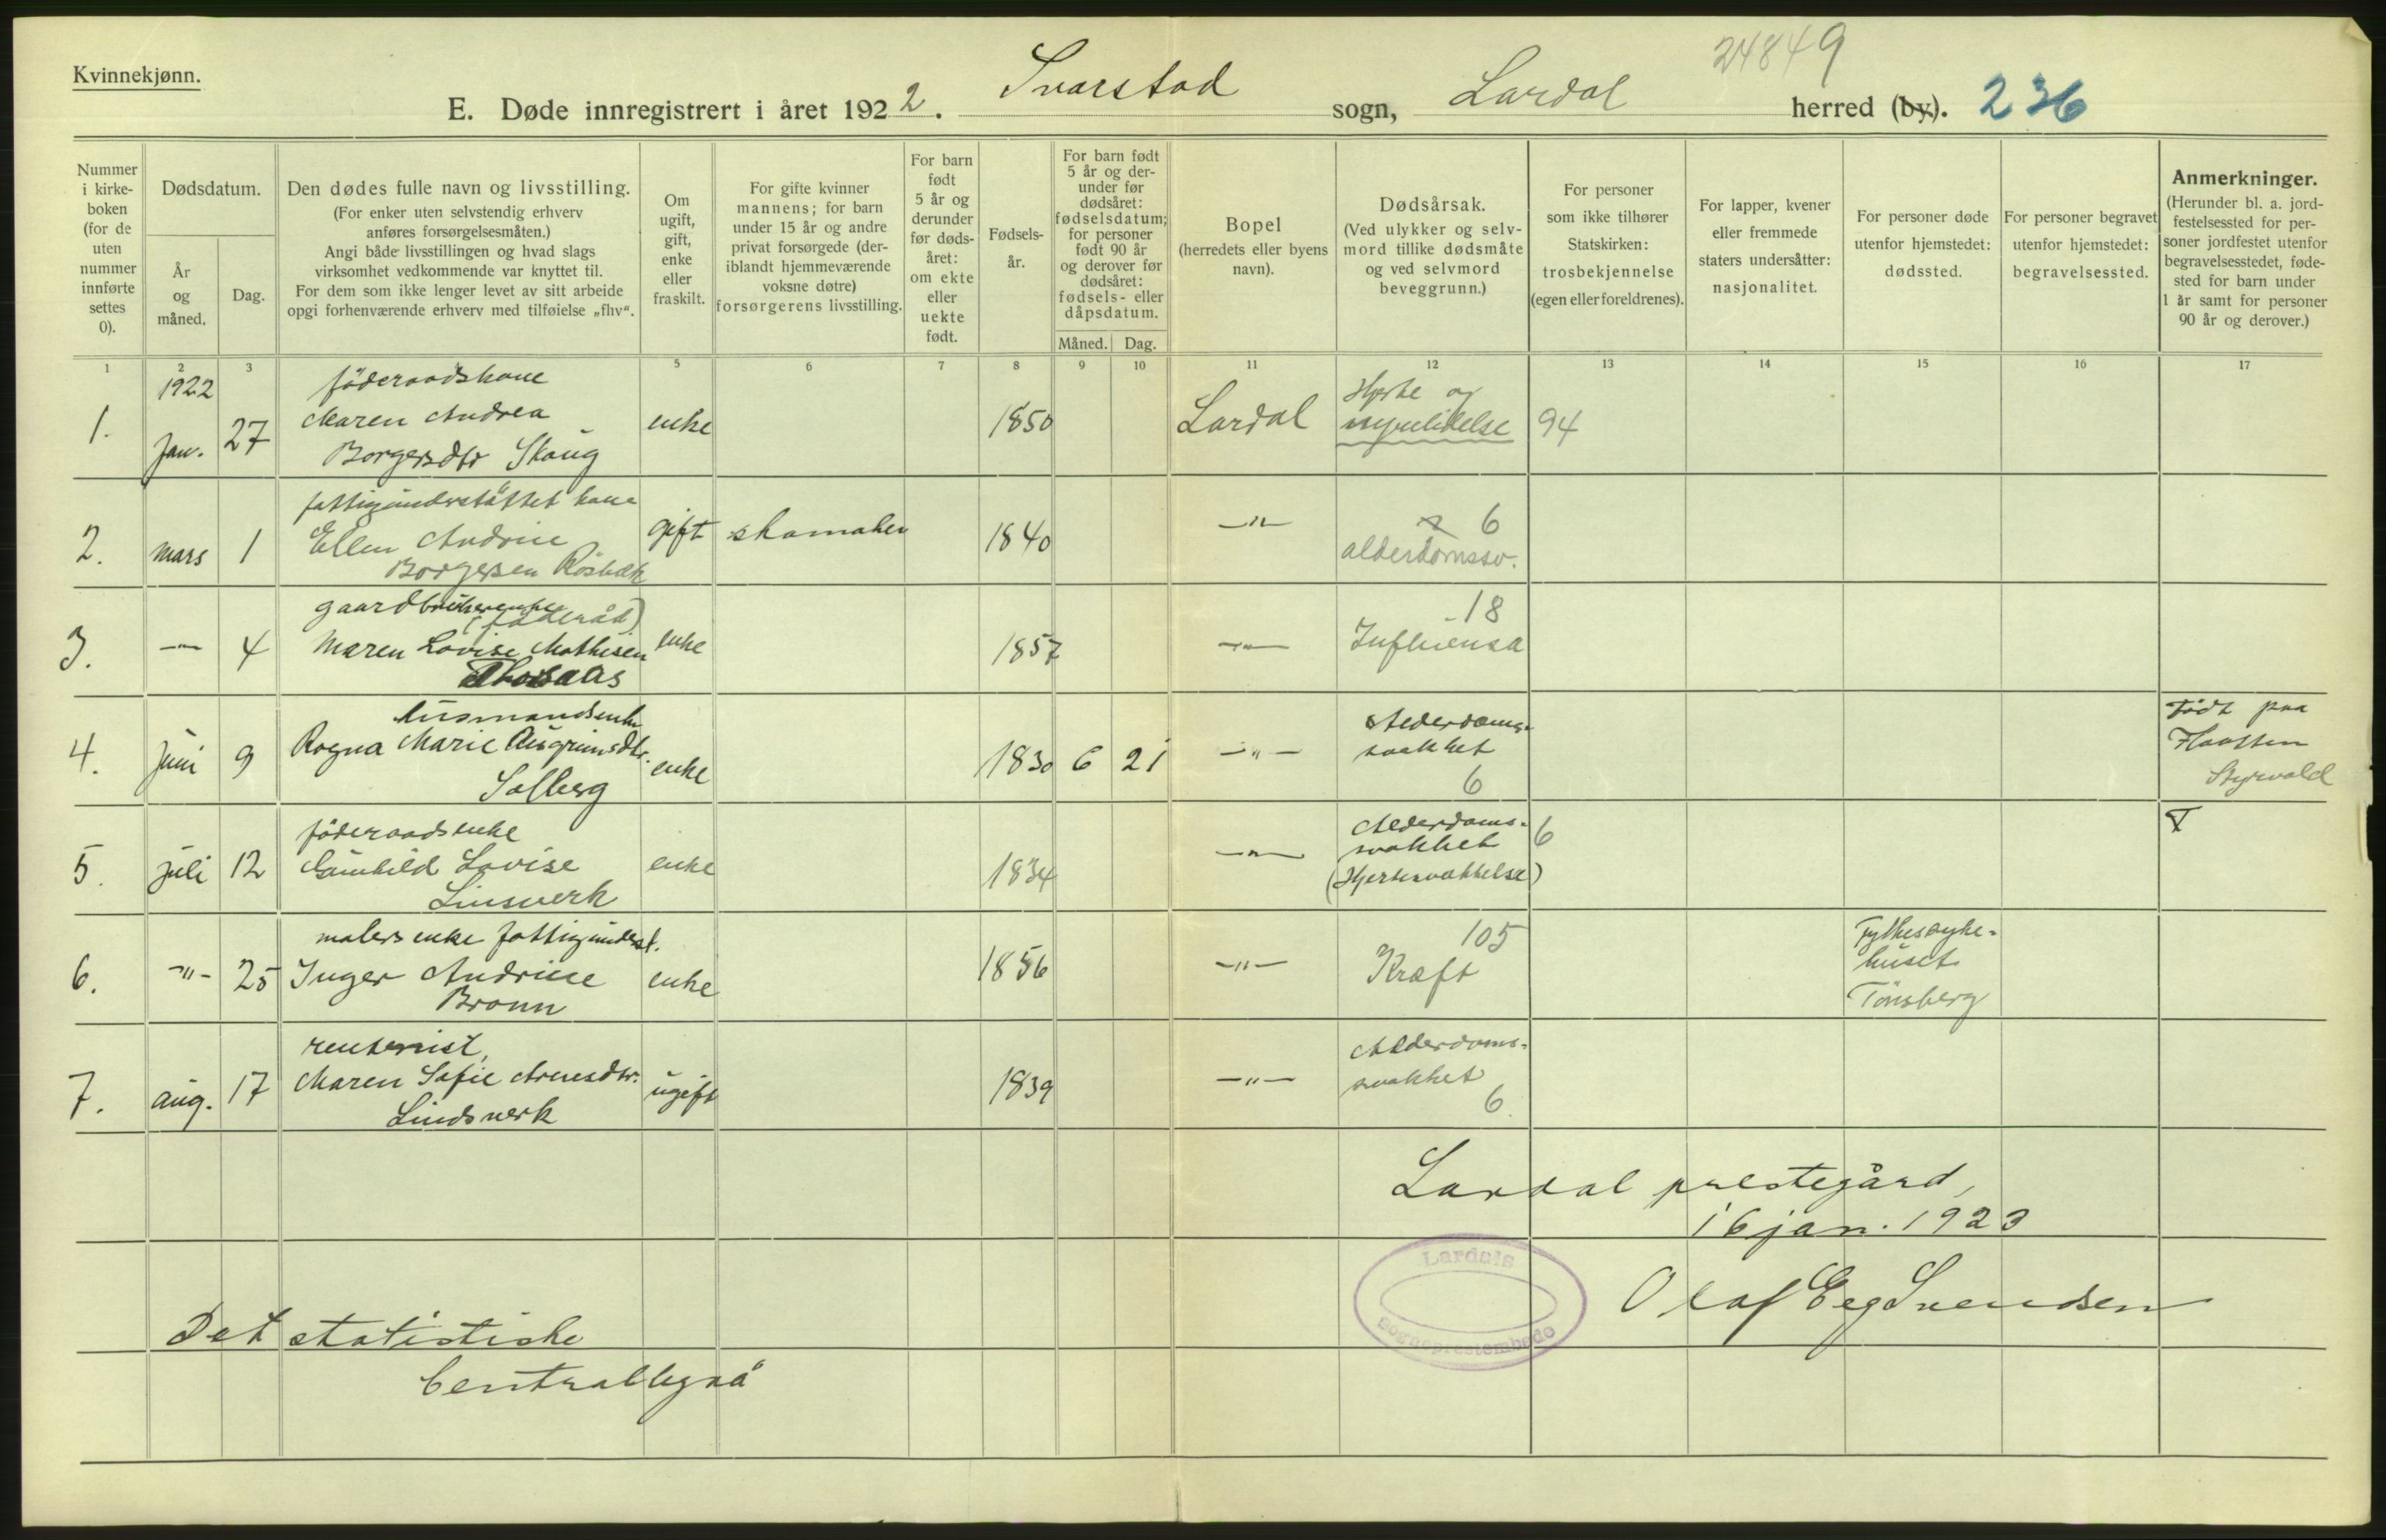 Kvinnekjønn.
24849
E. Døde innregistrert i året 1922. Svarstad sogn, Lardal herred (by). 236
Nummer i kirkeboken (for de uten nummer innførte settes 0).
Dødsdatum.
År og måned.
Dag.
Den dødes fulle navn og livsstilling.
(For enker uten selvstendig erhverv anføres forsørgelsesmåten.)
Angi både livsstillingen og hvad slags virksomhet vedkommende var knyttet til.
For dem som ikke lenger levet av sitt arbeide opgi forhenværende erhverv med tilføielse „fhv“.
Om ugift, gift, enke eller fraskilt.
For gifte kvinner mannens; for barn under 15 år og andre privat forsørgede (deriblandt hjemmeværende voksne døtre) forsørgerens livsstilling.
For barn født 5 år og derunder før dødsåret: om ekte eller uekte født.
Fødselsår.
For barn født 5 år og derunder før dødsåret: fødselsdatum; for personer født 90 år og derover før dødsåret: fødsels- eller dåpsdatum.
Måned. Dag.
Bopel (herredets eller byens navn).
Dødsårsak.
(Ved ulykker og selvmord tillike dødsmåte og ved selvmord beveggrunn.)
For personer som ikke tilhører Statskirken: trosbekjennelse (egen eller foreldrenes).
For lapper, kvener eller fremmede staters undersåtter: nasjonalitet.
For personer døde utenfor hjemstedet: dødssted.
For personer begravet utenfor hjemstedet: begravelsessted.
Anmerkninger.
(Herunder bl. a. jordfestelsessted for personer jordfestet utenfor begravelsesstedet, fødested for barn under 1 år samt for personer 90 år og derover.)
1 2 3 5 6 7 8 9 10 11 12 13 14 15 16 17
1922
föderaadskone
1. Jan. 27 Maren Andrea enke 1850 Lardal Hjerte og nyrelidelse 94
Borgersdtr Skaug
fattigunderstöttet kone
2. mars 1 Ellen Andrine gift skomaker 1840 —"— 6
Borgersen alderdomssv.
gaardbrukerenke (föderåd)
3. —"— 4 Maren Lovise Mathisen enke 1857 —"— 18 Influensa
Thorsaas
husmandsenke
4. juni 9 Ragna Marie enke 1830 6 21 —"— Alderdomssvakhet 6
Solberg
Född paa
Styrvold
föderaadsenke
5. juli 12 Gunhild Lovise enke 1834 —"— Alderdomssvakhet 6
Linsverk (Hjertesvækkelse)
malers enke fattigunderst.
6. —"— 25 Inger Andrine enke 1856 —"— 105 Kræft
Fylkessykehuset Tönsberg
rentenist,
7. aug. 17 Maren Sofie Arnesdtr. ugift 1839 —"— Alderdomssvakhet 6
Lindsverk
Lardal prestegård,
16 jan. 1923
Lardals sogneprestembede
Olaf Eeg Svendsen
Det statistiske
Centralbyrå